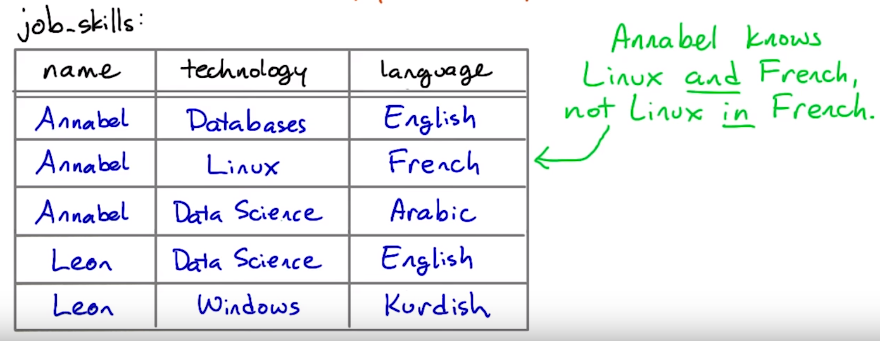 job_skills:
name technology language
Annabel Databases English
Annabel Linux French
Annabel Data Science Arabic
Leon Data Science English
Leon Windows Kurdish
Annabel knows
Linux and French,
not Linux in French.